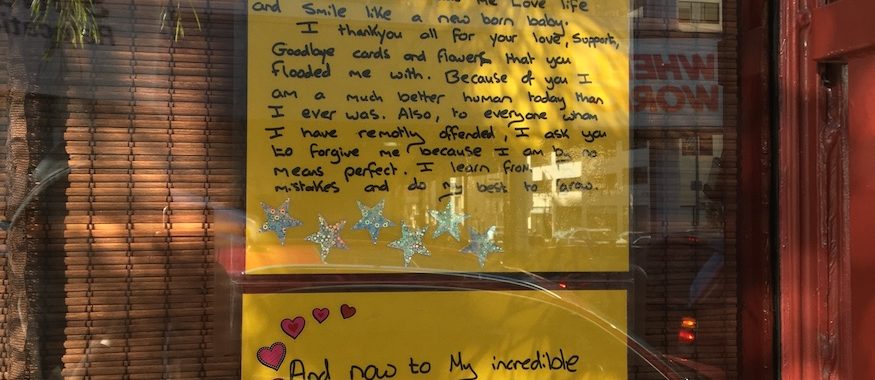 me Love life
and Smile like a new born baby.
I thankyou all for your love, Support,
Goodbye cards and flowers that you
flooded me with. Because of you I
am a much better human today than
I ever was. Also, to everyone whom
I have remotly offended, I ask you
to forgive me because I am by no
means perfect. I learn from
mistakes and do my best to Grow.
And now to My incredible
WHE
WOR